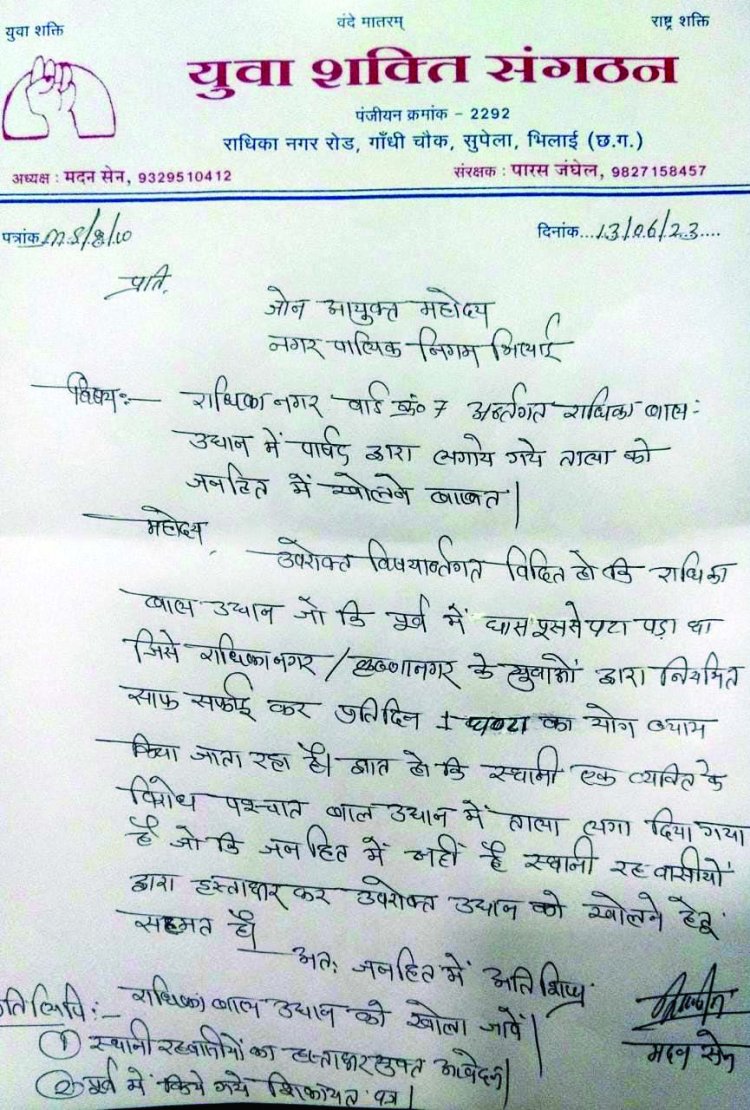 युवा शक्ति
वंदे मातरम्
राष्ट्र शक्ति
युवा शक्ति संगठन
पंजीयन क्रमांक - 2292
राधिका नगर रोड, गाँधी चौक, सुपेला, भिलाई (छ.ग.)
अध्यक्ष : मदन सेन, 9329510412
संरक्षक : पारस जंघेल, 9827158457
पत्रांक
दिनांक...13/06/23....
प्रति,
जोन आयुक्त महोदय
नगर पालिक निगम भिलाई
विषय:- राधिका नगर वार्ड क्रं० 7 अर्न्तगत राधिका बाल
उद्यान में पार्षद द्वारा लगाये गये ताला को
जनहित में खोलने बाबत।
महोदय,
उपरोक्त विषयार्न्तगत विदित हो कि राधिका
बाल उद्यान जो कि पूर्व में घास पटा पड़ा था
जिसे राधिका नगर / कृष्णानगर के युवाओं द्वारा नियमित
साफ सफाई कर प्रतिदिन 1 घण्टा का योग
किया जाता रहा है। ज्ञात हो कि स्थानी एक व्यक्ति के
विरोध पश्चात बाल उद्यान में ताला लगा दिया गया
है जो कि जनहित में नहीं है स्थानी रहवासीयों
द्वारा हस्ताक्षर कर उपरोक्त उद्यान को खोलने हेतू
सहमत है।
अतः जनहित में अति शिघ्र
राधिका बाल उद्यान को खोला जावें।
मदन सेन
तिलिपि :-
① स्थानी रहवासीयों का हस्ताक्षरयुक्त आवेदन।
② पूर्व में किये गये शिकायत पत्र।